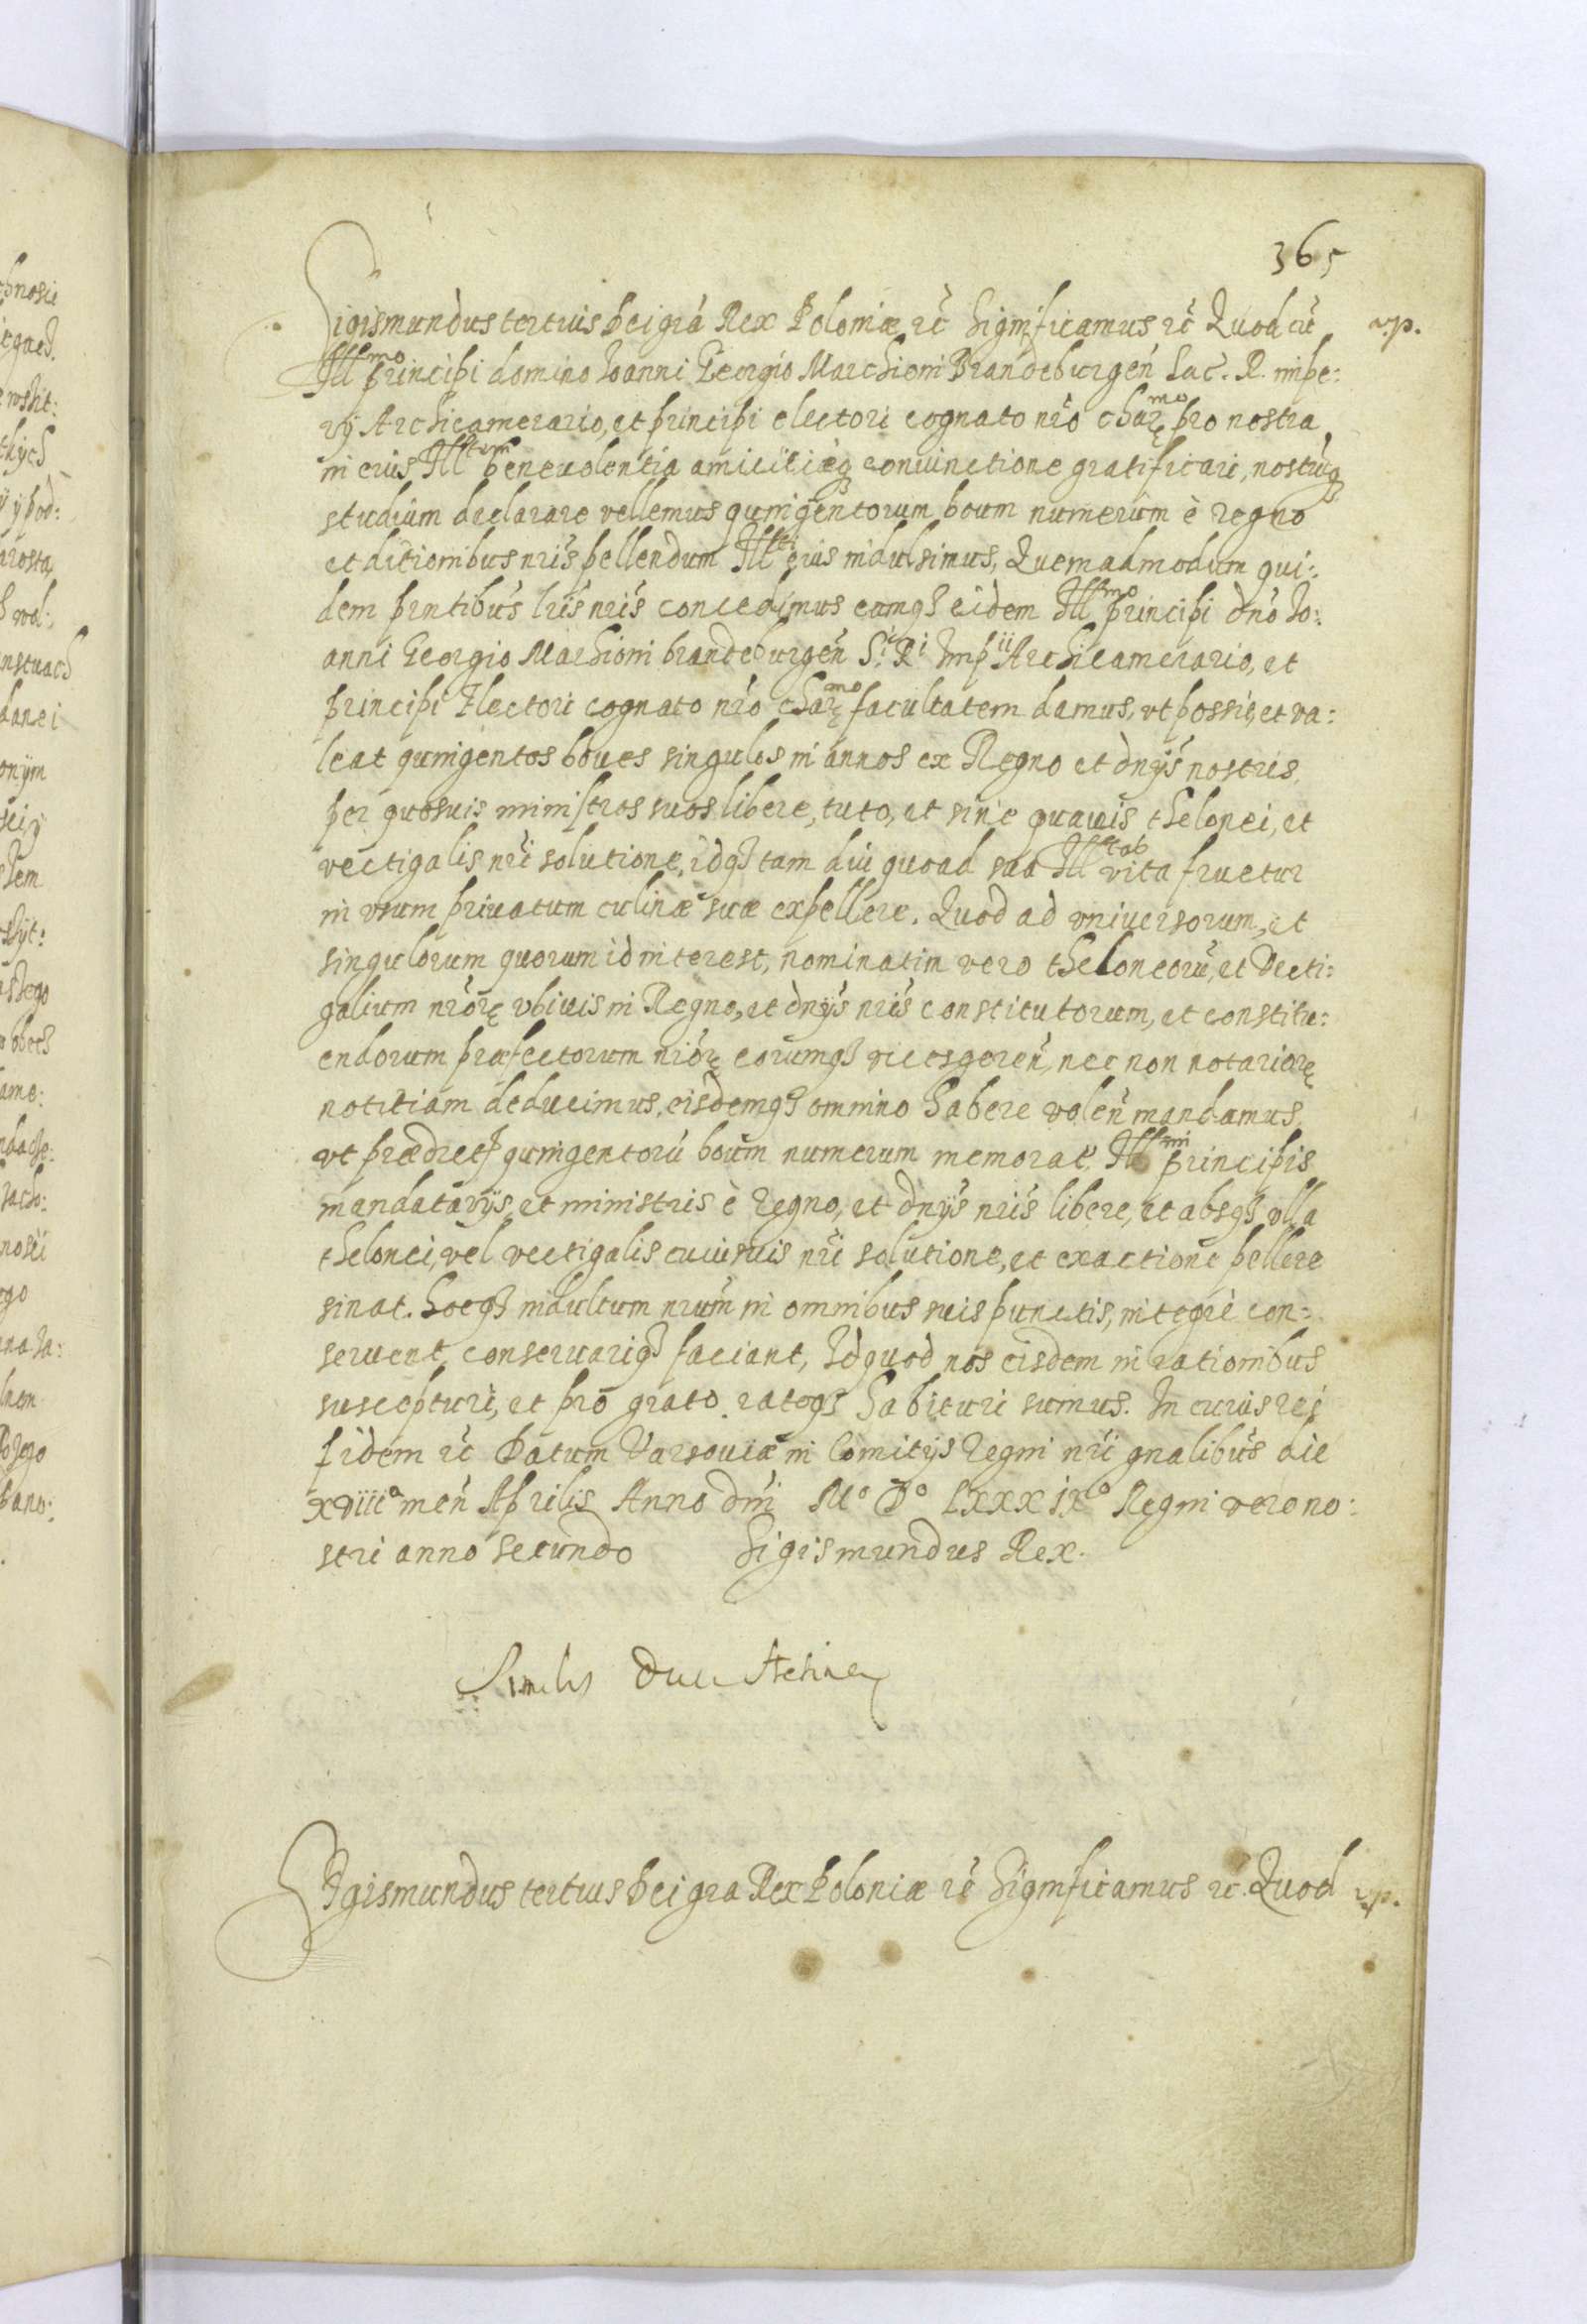 365
Sigismundus tertius Dei grã Rex Poloniæ rc̃ Significamus rc̃ Quod cũ v.p.
Illmo principi domino Ioanni Georgio Marchioni Brandeburgeñ Sac. R. impe:
rÿ Archicamerario, et principi electori cognato nrõ charmo pro nostra
in eius Illtem beneuolentia amicitiæq coniunctione gratificari, nostrũq
studium declarare vellemus quingentorum boum numerum è regno
et ditionibus nrĩs pellendum Illti eius indulsimus, Quemadmodum qui:
dem prñtibus lrĩs nrĩs concedimus eamq eidem Illmo principi dnõ Io:
anni Georgio Marchioni brandeburgeñ S.ci Ri Impii Archicamerario, et
principi Electori cognato nrõ charmo facultatem damus, vt possit, et va:
leat quingentos boues singulos in annos ex Regno et dnÿs nostris,
per quosuis ministros suos libere, tuto, et sine quauis thelonei, et
vectigalis nrĩ solutione, idq tam diu quoad sua Illtas vita fruetur
in vsum priuatum culinæ suæ expellere. Quod ad vniuersorum, et
singulorum quorum id interest, nominatim vero theloneorũ, et Vecti:
galium nrõr vbiuis in Regno, et dnÿs nrĩs constitutorum, et constitu:
endorum præfectorum nrõr eorumq vicesgereñ, nec non notarior
notitiam deducimus, eisdemq omnino habere voleñ mandamus
vt prædict quingentorũ boum numerum memorat Illmi principis
mandatarÿs, et ministris è regno, et dnÿs nrĩs libere, et absq vlla
thelonei, vel vectigalis cuiusuis nrĩ solutione, et exactione pellere
sinat. hocq indultum nrũm in omnibus suis punctis, integrè con:
seruent, conseruariq faciant, Id quod nos eisdem in rationibus
suscepturi, et pro grato ratoq habituri sumus. In cuius rei
fidem rc̃ Datum Varsouiæ in Comitÿs regni nrĩ gnãlibus die
xviiia meñ Aprilis Anno dñi Mo Do LXXXIXo Regni vero no:
stri anno secundo Sigismundus Rex.
Similes Duci
Sigismundus tertius Dei gra Rex Poloniæ rc̃ Significamus rc̃. Quod v.p.